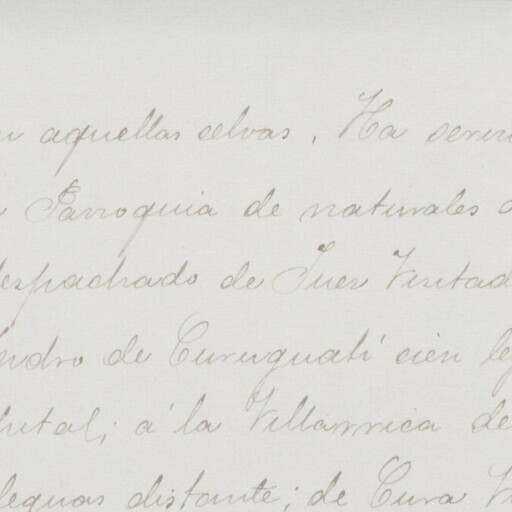 aquellas selvas. Ha
Parroquia de naturales
despachado de Juez
de Curuguatí cien
á la Villarrica de
leguas distante; de Cura